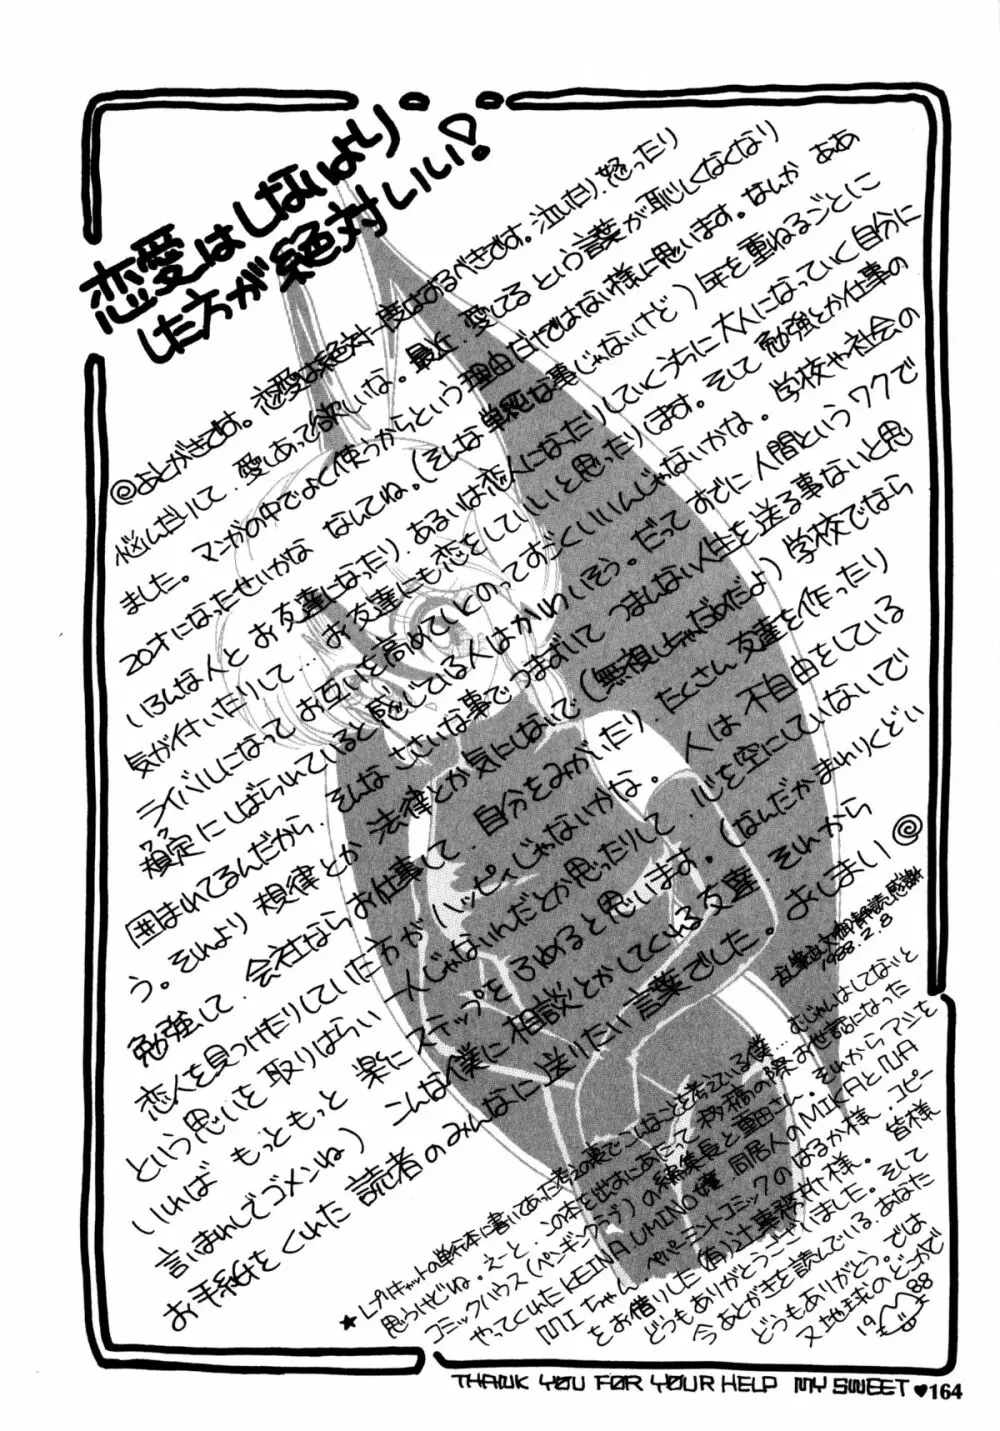 恋愛はしないより
した方が絶対いい!
@あとがきです。恋愛は絶対一度はするべきです。泣いたり、怒ったり
悩んだりして、愛しあって欲しいな。最近、愛してるという言葉が恥しくなくなり
ました。マンガの中でよく使うからという理由だけではない様に思います。なんか ああ
20才になったせいかな なんてね。(そんな単純な事じゃないけど)年を重ねるごとに
いろんな人とお友達になったり、あるいは恋人になったりしていくうちに大人になっていく自分に
気が付いたりして…お友達にも恋をしていいと思ったりします。そして勉強とか仕事の
ライバルになってお互いを高めていくのってすごくいいんじゃないかな。学校や社会の
規定にしばられていると感じている人はかわいそう。だってすでに人間というワクで
囲まれてるんだから、そんなささいな事でつまずいてつまんない人生を送る事ないと思
う。それより規律とか法律とか気にしないで(無視しちゃだめだよ)学校でなら
勉強して、会社ならお仕事して、自分をみがいたり、たくさん友達を作ったり
恋人を見つけたりしていた方がハッピィじゃないかな。人は不自由をしている
という思いを取りはらい 一人じゃないんだとか思ったりして、心を空にしていないで
いれば もっともっと 楽にステップをふめると思います。(なんだかまわりくどい
言いまわしでゴメンね)こんな僕に相談とかしてくれる友達、それから
お手紙をくれた読者のみんなに送りたい言葉でした。おしまい@
1988.2.8
★レプリキャットの単行本に書いてあった考えの事でこんなことを考えている僕…むじゅんはしてないと
思うけどね。えーと、この本を出すにあたって移稿の際お世話になった
コミックハウス(ペンギンクラブ)の編集長と重田さん。それからアシを
やってくれたKEINA UMINO嬢、同居人のMIKAとNA
MIちゃん。ペパーミントコミックのはるか様、コピー
をお借りした(有)辻事務所様。皆様
どうもありがとうございました。そして
今あとがきを読んでいる、あなた
どうもありがとう。では
又地球のどこかで
1988
THANK YOU FOR YOUR HELP MY SWEET ♥164